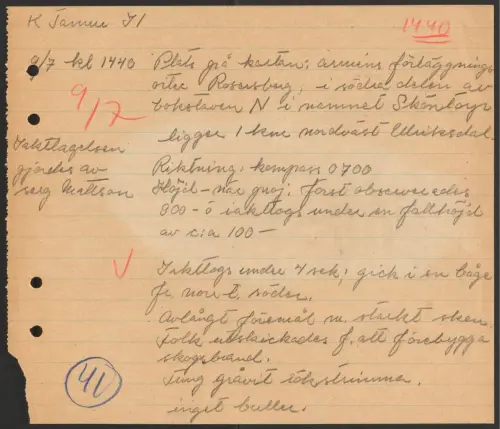 K Tamm I1
1440
9/7 kl 1440 Plats på kartan: armens förläggnings
9/7
orter Rosersberg, i södra delen av
bokstaven N i namnet Skånlager
ligger 1 km nordväst Ulriksdal
Iakttagelsen
gjordes av
serg Mattson
Riktning: kompass 0700
Höjd - när proj. först observerades
300 - ö iakttogs under en fallhöjd
av c:a 100 -
V
Iakttogs under 4 sek; gick i en båge
fr. norr t. söder.
Avlångt föremål m. starkt sken
Folk utskickades f. att förebygga
skogsbrand.
Tung gråvit rökstrimma.
inget buller.
41